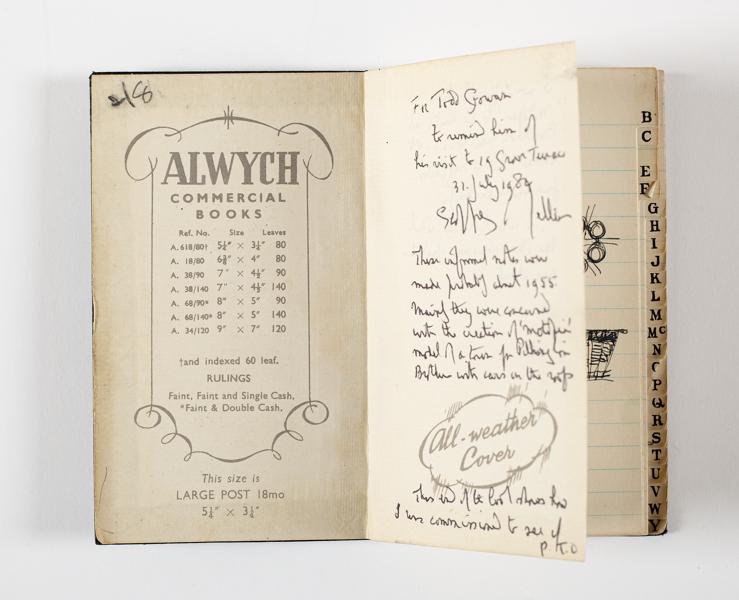 2/8
ALWYCH
COMMERCIAL
BOOKS
Ref. No. Size Leaves
A. 618/80† 5¼" × 3¼" 80
A. 18/80 6⅜" × 4" 80
A. 38/90 7" × 4½" 90
A. 38/140 7" × 4½" 140
A. 68/90* 8" × 5" 90
A. 68/140* 8" × 5" 140
A. 34/120 9" × 7" 120
†and indexed 60 leaf.
RULINGS
Faint, Faint and Single Cash,
*Faint & Double Cash.
This size is
LARGE POST 18mo
5¼" × 3¼"
For Todd
to remind him of
his visit to 19 Grove Terrace
31. July 1982
Geoffrey Jellicoe
These informal notes were
made probably about 1955
Mainly they were concerned
with the creation of 'Motopia'
model of a town for Pilkington
with cars on the roofs
All-weather
Cover
This end of the book shows how
I was commissioned to see if
P.T.O
B
C
E
F
G
H
I
J
K
L
M
Mc
N
O
P
Q
R
S
T
U
V
W
Y